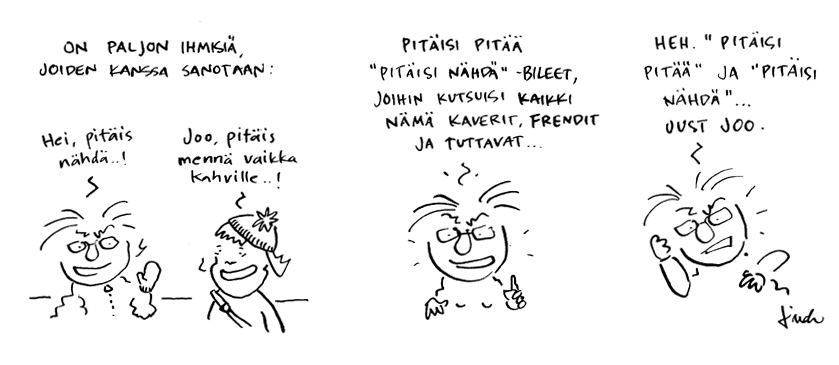 ON PALJON IHMISIÄ,
JOIDEN KANSSA SANOTAAN:
Hei, pitäis
nähdä..!
Joo, pitäis
mennä vaikka
kahville..!
PITÄISI PITÄÄ
"PITÄISI NÄHDÄ" -BILEET,
JOIHIN KUTSUISI KAIKKI
NÄMÄ KAVERIT, FRENDIT
JA TUTTAVAT...
HEH. "PITÄISI
PITÄÄ" JA "PITÄISI
NÄHDÄ"...
JUST JOO.